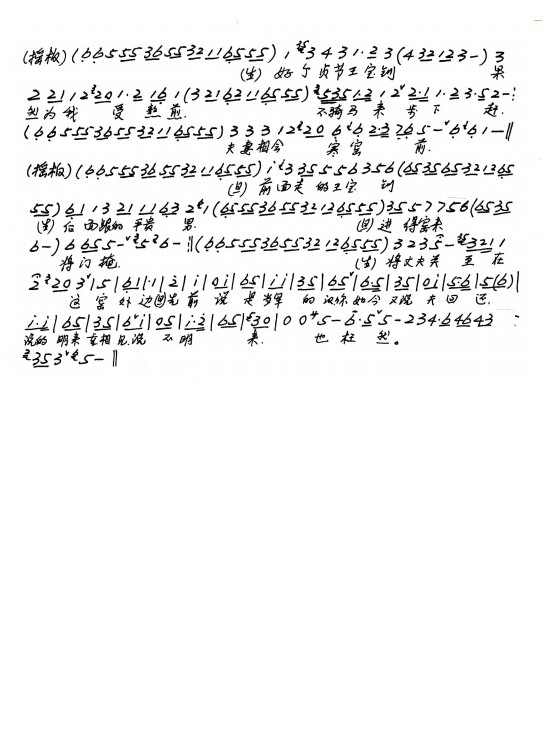 (摇板) (6 6 5 5 5 3 6 5 5 3 2 1 1 6 5 5 5) 1 3 4 3 1·2 3 (4 3 2 1 2 3 -) 3
(生) 好个贞节王宝钏 果
2 2 1 1 2 2 0 1·2 1 6 1 (3 2 1 6 2 1 1 6 5 5 5) 5 3 5 1·2 1 2 2·1 1·2 3·5 2 -
然为我 受 前. 不骑马 来 步下 赶.
(6 6 5 5 5 3 6 5 5 3 2 1 1 6 5 5 5) 3 3 3 1 2 2 0 6 6 2·3 7 6 5 - 6 6 1 - ‖
夫妻相会 寒窑 前.
(摇板) (6 6 5 5 5 3 6 5 5 3 2 1 1 6 5 5 5) i 3 3 5 5 5 6 3 5 6 (6 5 3 5 6 5 3 2 1 2 3 6 5
(旦) 前面走 的王宝 钏
5 5) 6 1 1 3 2 1 1 1 6 3 2 1 (6 5 5 5 3 6 5 5 3 2 1 2 6 5 5 5) 3 5 5 7 7 5 6 (6 5 3 5
(生) 后面跟的 平贵 男. (旦) 进 得窑来
6 -) 6 6 5 5 - 5 6 - ‖ (6 6 5 5 5 3 6 5 5 3 2 1 2 6 5 5 5) 3 2 3 5 - 3 2 1 1
将门 掩. (生) 将丈夫关 在
2 2 0 3 | 5 | 6 1 | ·1 | 2 | i | 0 i | 6 5 | i i | 3 5 | 6 5 | 6·5 | 3 5 | 0 i | 5·6 | 5 (6) |
这 窑 外 边 (旦) 先 前 说 是 的 汉 你 如今 又说 夫 回 还.
i·i | 6 5 | 3 5 | 6 i | 0 5 | i·2 | 6 5 | 3 0 | 0 0 5 - 6·5 5 - 2 3 4·6 4 6 4 3
说的 明来 相见 说 不明 来. 也 枉 然。
3 5 3 5 - ‖